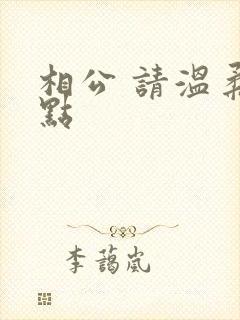 相公 請溫柔
點
李藹嵐